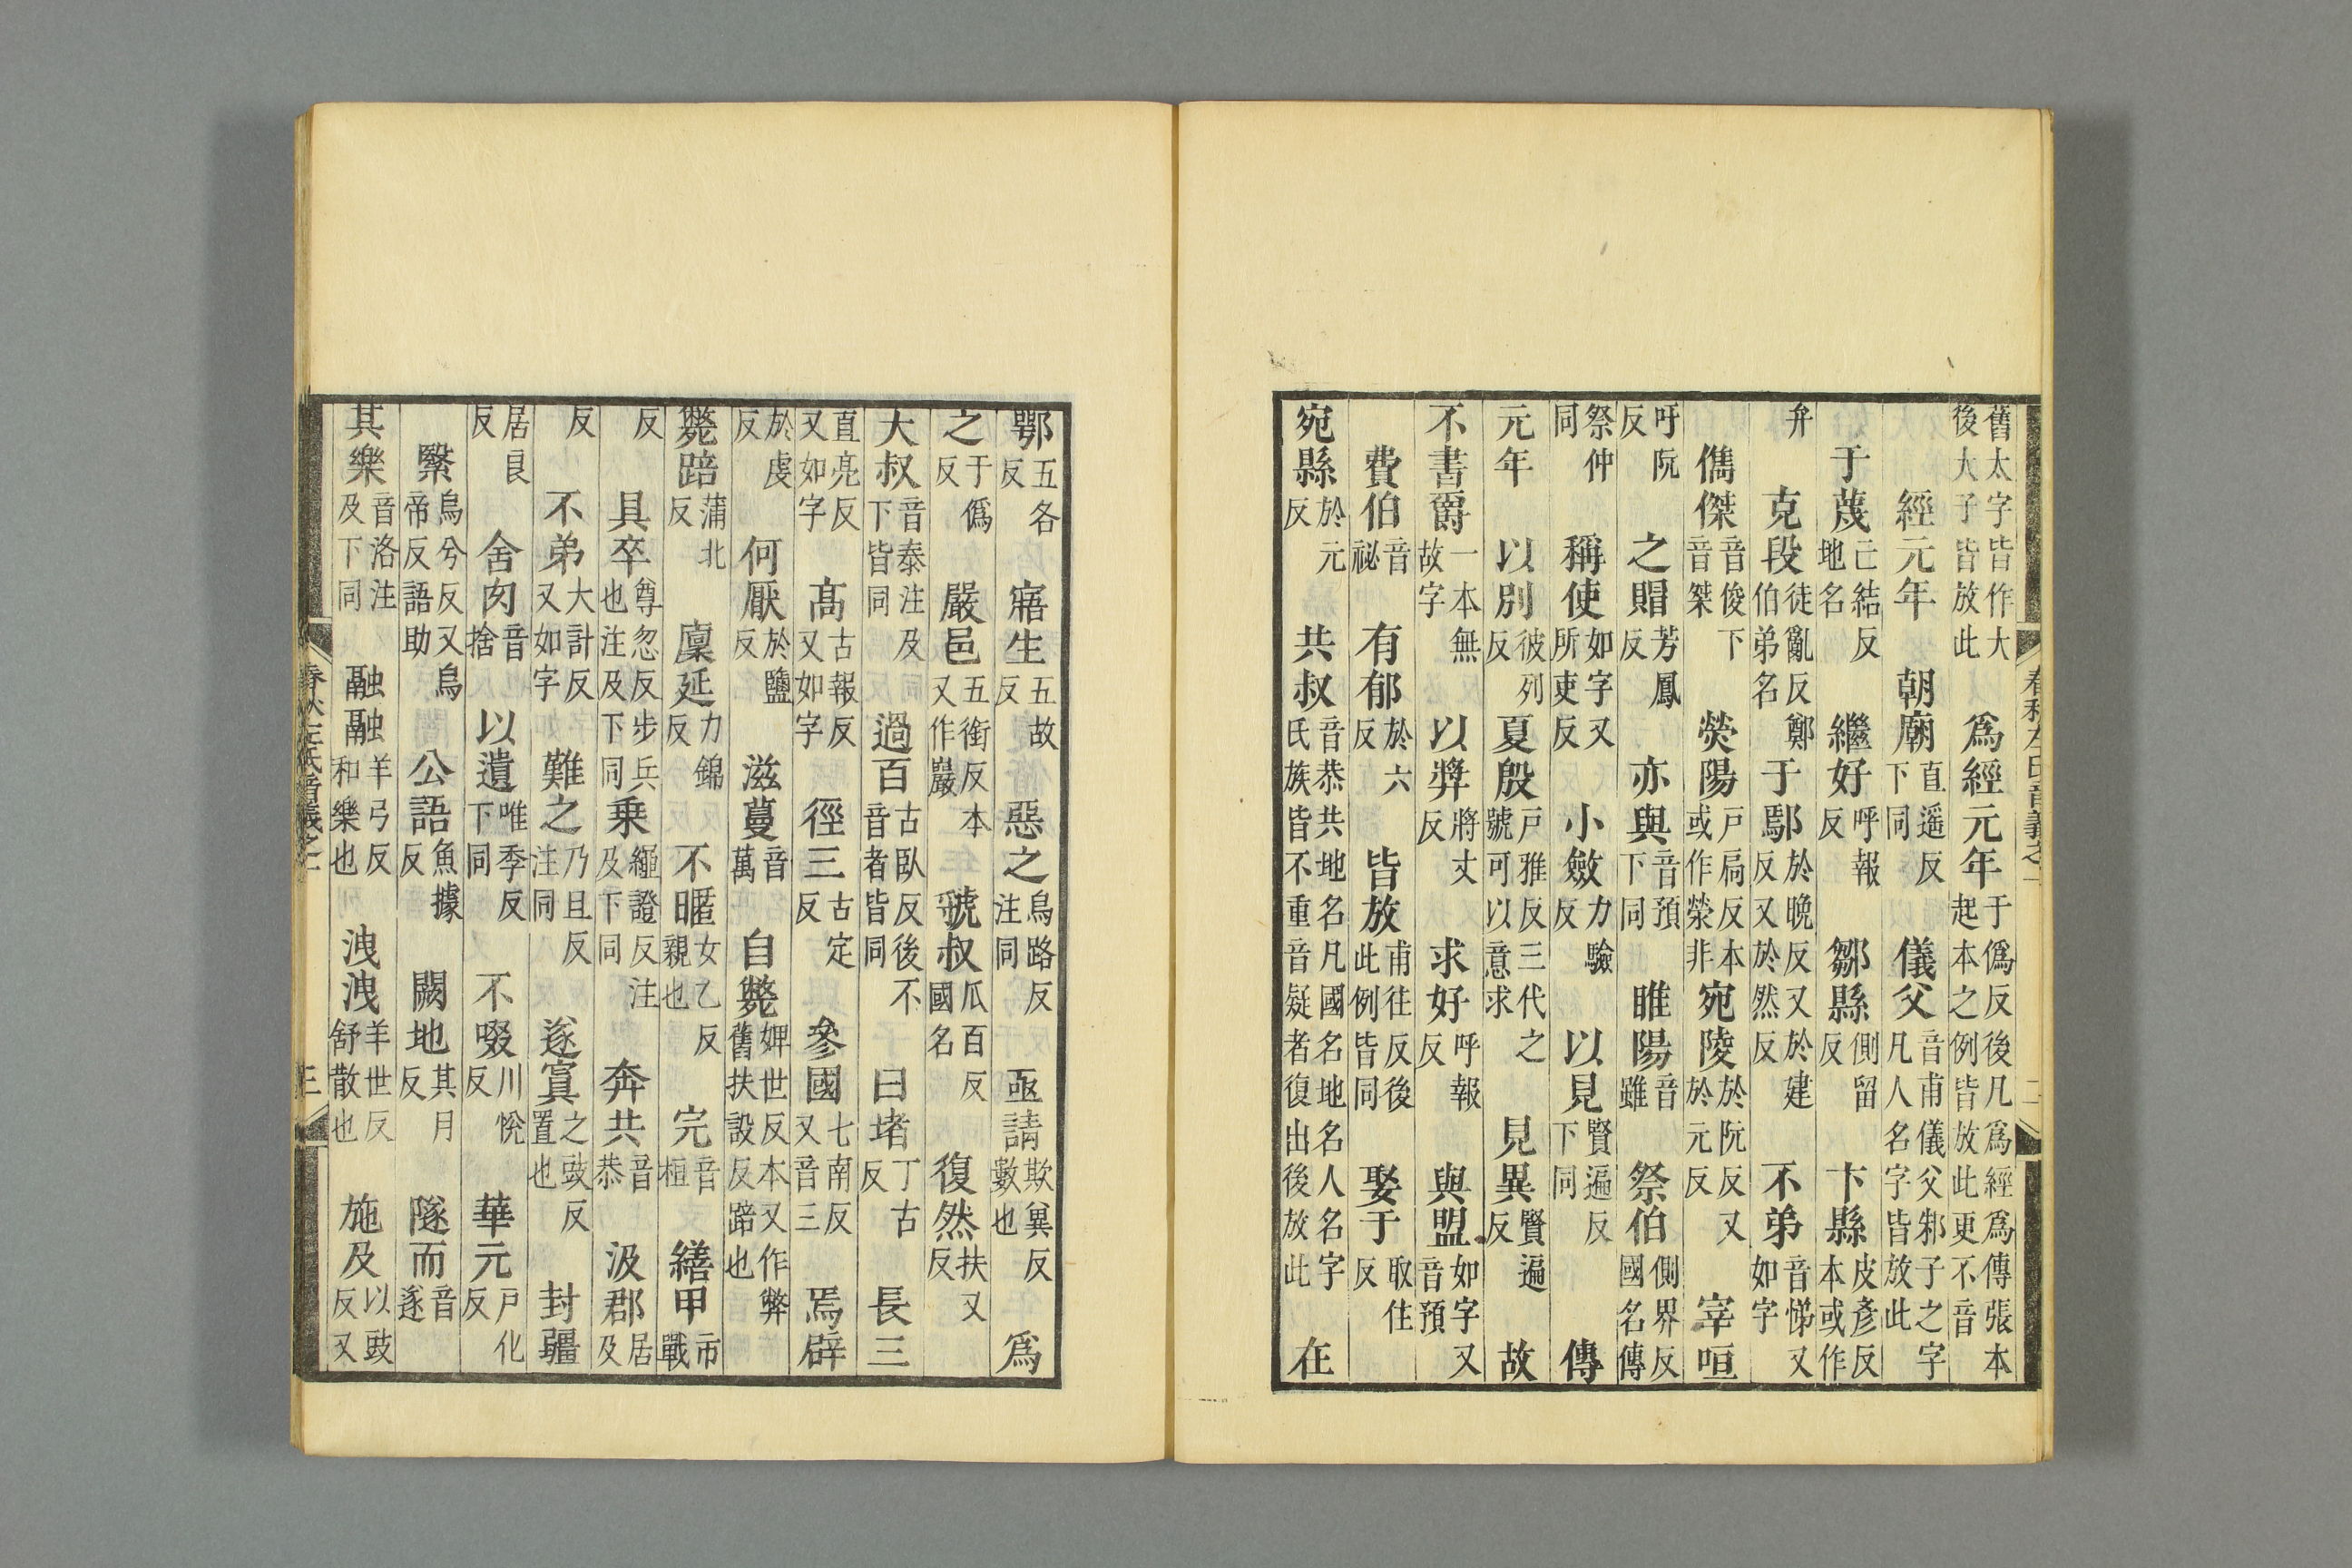 舊太字皆作大後大子皆放此爲經元年于僞反後凡爲經爲傳張本起本之例皆放此更不音
經元年朝廟直遥反下同儀父音甫儀父邾子之字凡人名字皆放此
于蔑亡結反地名繼好呼報反鄒縣側留反卞縣皮彥反本或作
弁克段徒亂反鄭伯弟名于鄢於晚反又於建反又於然反不弟音悌又如字
儁傑音俊下音桀熒陽戶扃反本或作滎非宛陵於阮反又於元反宰咺
吁阮反之賵芳鳳反亦與音預下同睢陽音雖祭伯側界反國名傳
祭仲同稱使如字又所吏反小斂力驗反以見賢遍反下同傳
元年以別彼列反夏殷戶雅反三代之號可以意求見異賢遍反故
不書爵一本無故字以弉將丈反求好呼報反與盟如字又音預
費伯音祕有郁於六反皆放甫往反後此例皆同娶于取住反
宛縣於元反共叔音恭共地名凡國名地名人名字氏族皆不重音疑者復出後放此在
春秋左氏音義之一 二
鄂五各反寤生五故反惡之烏路反注同亟請欺兾反數也爲
之于僞反嚴邑五銜反本又作巖虢叔瓜百反國名復然扶又反
大叔音泰注及下皆同過百古臥反後不音者皆同曰堵丁古反長三
直亮反又如字高古報反又如字徑三古定反參國七南反又音三焉辟
於虔反何厭於鹽反滋蔓音萬自斃婢世反本又作弊舊扶設反踣也
斃踣蒲北反廩延力錦反不暱女乙反親也完音桓繕甲市戰
反具卒尊忽反步兵也注及下同乗繩證反注及下同奔共音恭汲郡居及
反不弟大計反又如字難之乃且反注同遂寘之豉反置也封疆
居良反舍肉音捨以遺唯季反下同不啜川悅反華元戶化反
繄烏兮反又烏帝反語助公語魚據反闕地其月反隧而音遂
其樂音洛注及下同融融羊弓反和樂也洩洩羊世反舒散也施及以豉反又
春秋左氏音義之一 三